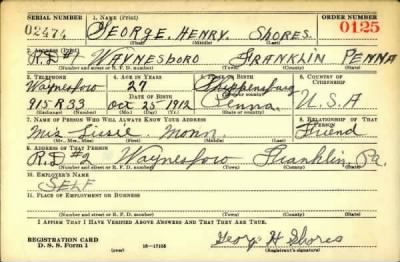 SERIAL NUMBER 1. NAME (Print) ORDER NUMBER
02474 GEORGE, HENRY. SHORES. 0125
(First) (Middle) (Last)
2. ADDRESS (Print)
R.D #2 WAYNESBORO FRANKLIN PENNA
(Number and street or R. F. D. number) (Town) (County) (State)
3. TELEPHONE 4. AGE IN YEARS 5. PLACE OF BIRTH 6. COUNTRY OF CITIZENSHIP
Waynesboro 27 Shippensburg
DATE OF BIRTH
915 R 33 Oct 25 1912 Penna. U.S.A
7. NAME OF PERSON WHO WILL ALWAYS KNOW YOUR ADDRESS 8. RELATIONSHIP OF THAT PERSON
Mrs Lissie. Monn. Friend
(Mr., Mrs., Miss) (First) (Middle) (Last)
9. ADDRESS OF THAT PERSON
R.D #2 Waynesboro Franklin, Pa.
(Number and street or R. F. D. number) (Town) (County) (State)
10. EMPLOYER'S NAME
SELF
11. PLACE OF EMPLOYMENT OR BUSINESS
(Number and street or R. F. D. number) (Town) (County) (State)
I AFFIRM THAT I HAVE VERIFIED ABOVE ANSWERS AND THAT THEY ARE TRUE.
REGISTRATION CARD
D. S. S. Form 1 (over) 16—17105 George H Shores
(Registrant's signature)